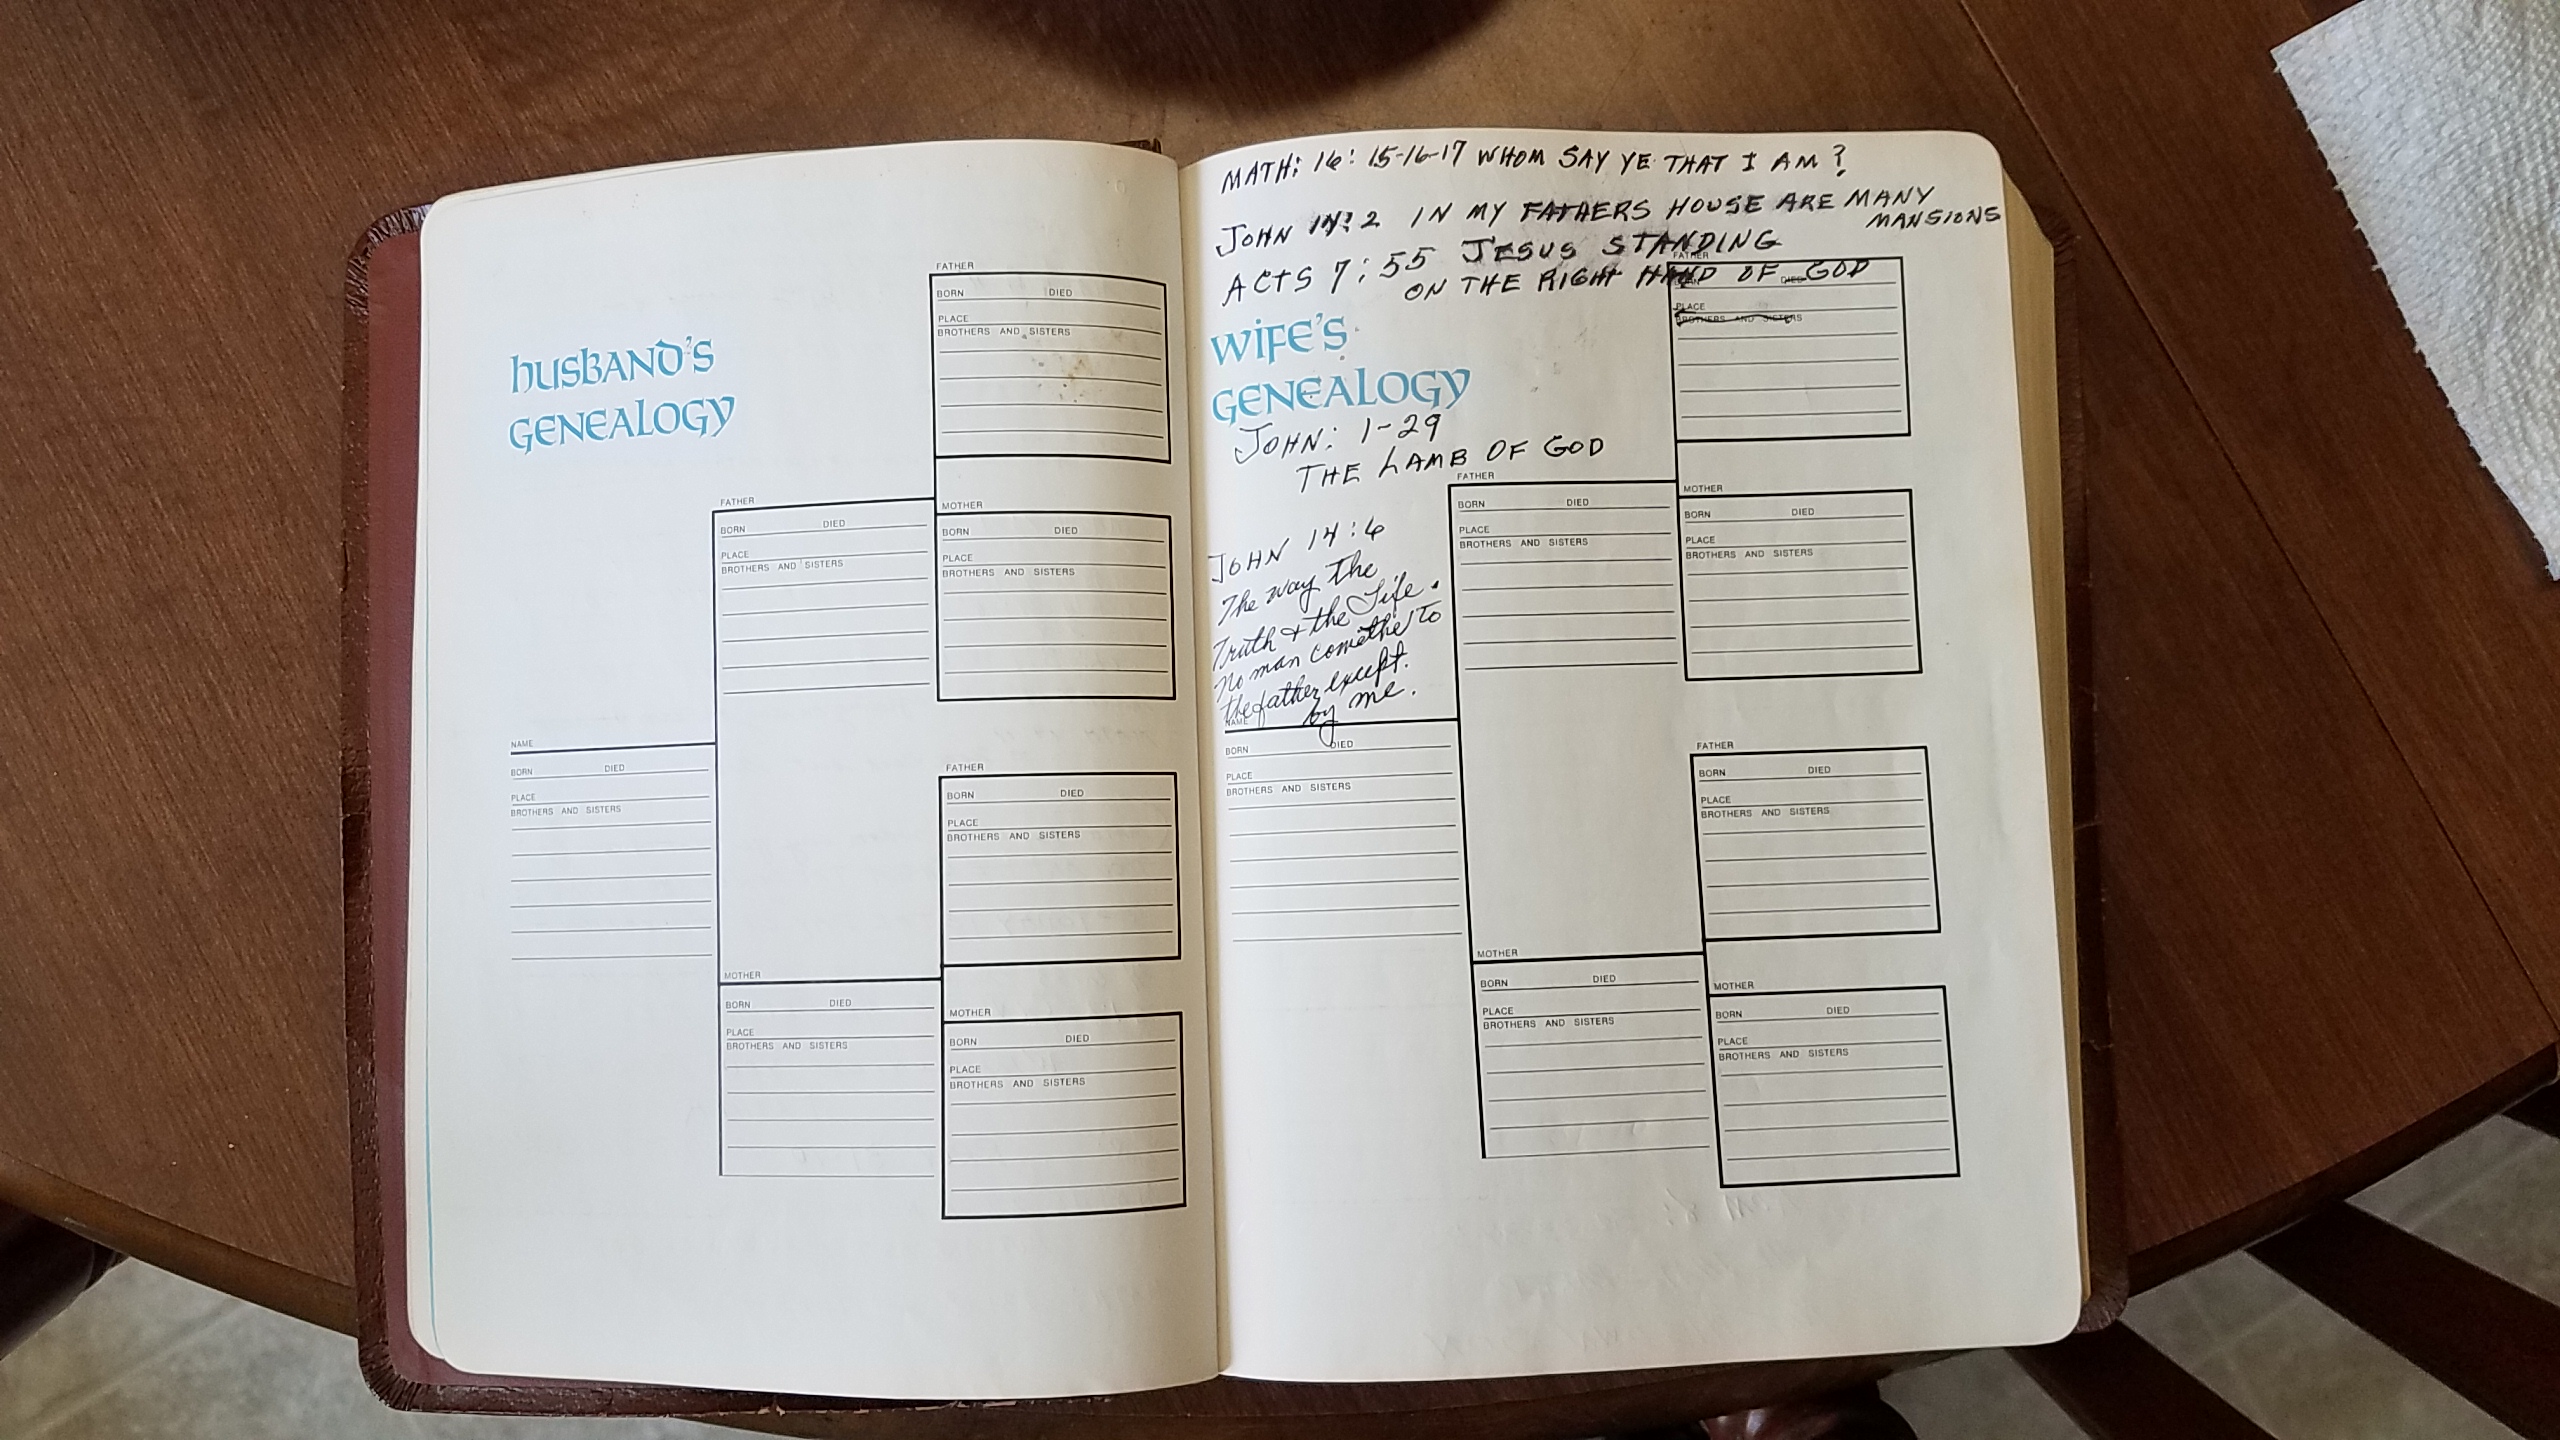 HUSBAND'S
GENEALOGY
FATHER
BORN DIED
PLACE
BROTHERS AND SISTERS
FATHER
BORN DIED
PLACE
BROTHERS AND SISTERS
MOTHER
BORN DIED
PLACE
BROTHERS AND SISTERS
NAME
BORN DIED
PLACE
BROTHERS AND SISTERS
FATHER
BORN DIED
PLACE
BROTHERS AND SISTERS
MOTHER
BORN DIED
PLACE
BROTHERS AND SISTERS
MOTHER
BORN DIED
PLACE
BROTHERS AND SISTERS
MATH: 16: 15-16-17 WHOM SAY YE THAT I AM?
JOHN 14:2 IN MY FATHERS HOUSE ARE MANY
MANSIONS
ACTS 7:55 JESUS STANDING
ON THE RIGHT HAND OF GOD
WIFE'S
GENEALOGY
JOHN: 1-29
THE LAMB OF GOD
FATHER
DIED
PLACE
BROTHERS AND SISTERS
FATHER
BORN DIED
PLACE
BROTHERS AND SISTERS
MOTHER
BORN DIED
PLACE
BROTHERS AND SISTERS
JOHN 14:6
The way the
Truth & the Life.
no man comethe to
the father except
by me.
NAME
BORN DIED
PLACE
BROTHERS AND SISTERS
FATHER
BORN DIED
PLACE
BROTHERS AND SISTERS
MOTHER
BORN DIED
PLACE
BROTHERS AND SISTERS
MOTHER
BORN DIED
PLACE
BROTHERS AND SISTERS